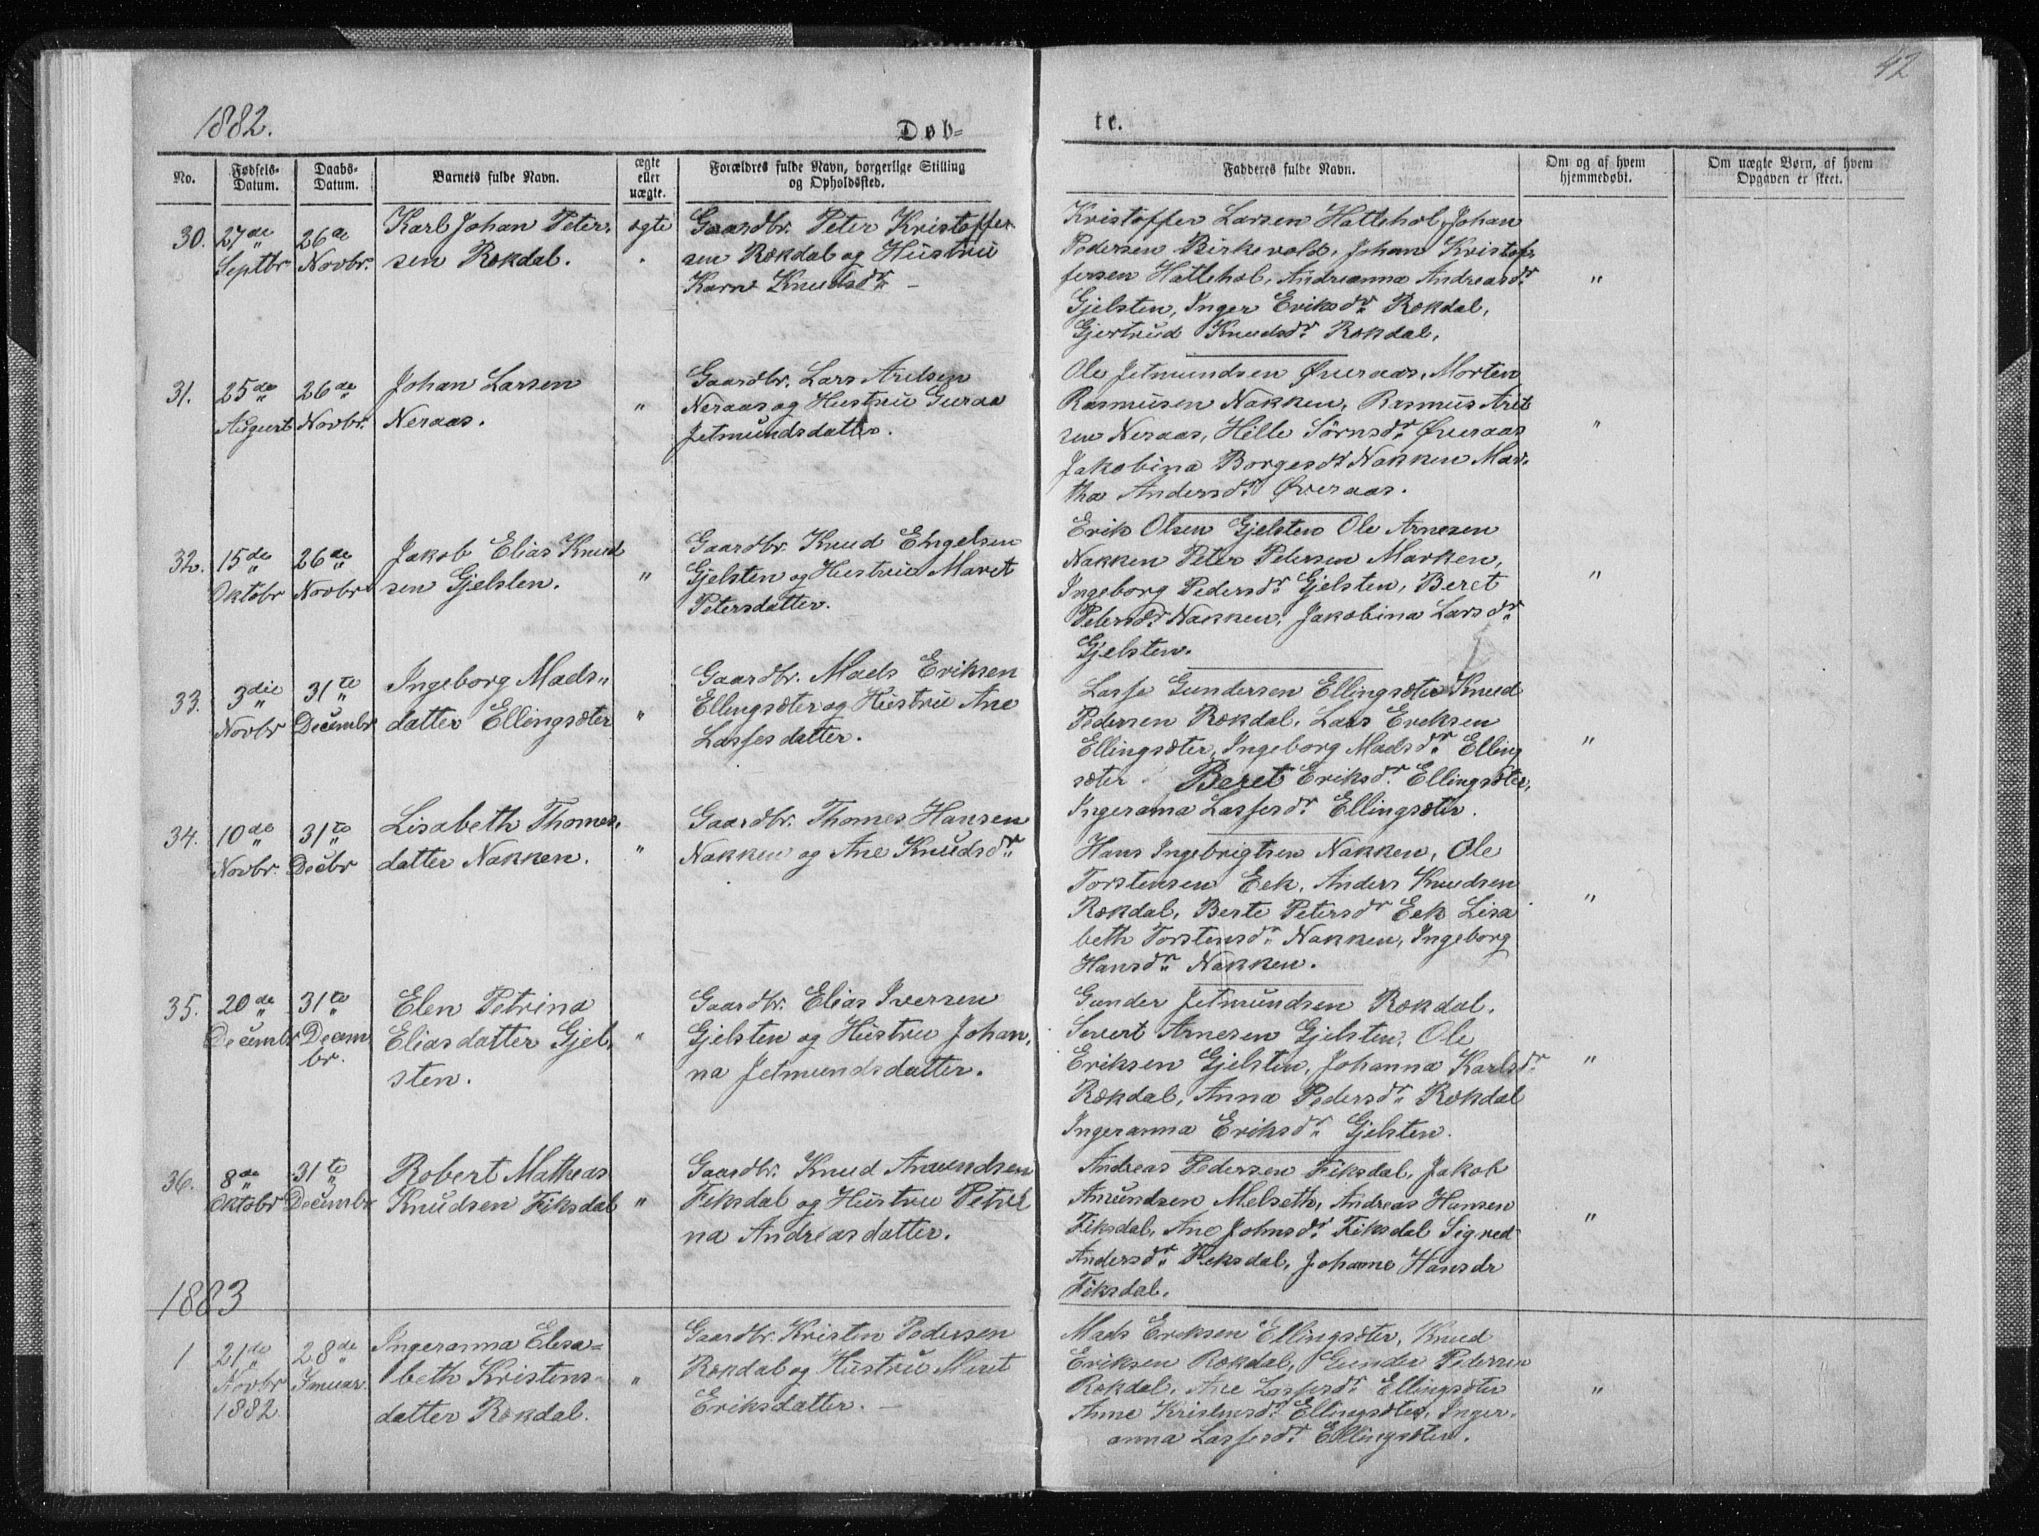 42
1882.
Døb-
te.
No.
Fødsels-
Datum.
Daabs-
Datum.
Barnets fulde Navn.
ægte
eller
uægte.
Forældres fulde Navn, borgerlige Stilling
og Opholdssted.
Fadderes fulde Navn.
Om og af hvem
hjemmedøbt.
Om uægte Børn, af hvem
Opgaven er skeet.
30.
27de
Septbr
26de
Novbr.
Karl Johan Peter-
sen Rekdal.
egte
Gaardbr. Peter Kristoffer-
sen Rekdal og Hustru
Karn Knudsdr. –
Kristoffer Larsen Hattehol, Johan
Pedersen Birkevold, Johan Kristof-
fersen Hattehol, Andreanna Andreasdr.
Gjelsten, Inger Eriksdr. Rekdal,
Gjertrud Knudsdr. Rekdal.
"
31.
25de
August
26de
Novbr.
Johan Larsen
Neraas.
"
Gaardbr. Lars Arelsen
Neraas og Hustru Guraa
Jetmundsdatter.
Ole Jetmundsen Øveraas, Morten
Rasmusen Nakken, Rasmus Arel
sen Neraas, Hille Sørnsdr. Øveraas
Jakobina Borgesdr Nakken Mar-
tha Andersdr. Øveraas.
"
32.
15de
Oktobr
26de
Novbr
Jakob Elias Knud
sen Gjelsten.
"
Gaardbr. Knud Engelsen
Gjelsten og Hustru Maret
Petersdatter.
Erik Olsen Gjelsten Ole Arnesen
Nakken Peter Petersen Marken,
Ingeborg Pedersdr. Gjelsten, Beret
Petersdr. Nakken, Jakobina Larsdr.
Gjelsten.
"
33.
3die
Novbr
31te
Decembr
Ingeborg Mads-
datter Ellingseter
"
Gaardbr. Mads Eriksen
Ellingseter og Hustru Ane
Lassesdatter.
Lasse Gundersen Ellingseter Knud
Pedersen Rekdal, Lars Eriksen
Ellingseter, Ingeborg Madsdr. Elling
seter Beret Eriksdr. Ellingseter,
Ingeranna Lassesdr. Ellingseter.
"
34.
10de
Novbr.
31te
Decbr
Lisabeth Thomes-
datter Nakken.
"
Gaardbr. Thomes Hansen
Nakken og Ane Knudsdr.
Hans Ingebrigtsen Nakken, Ole
Torstensen Eek, Anders Knudsen
Rekdal, Berte Petersdr. Eek Lisa
beth Torstensdr. Nakken, Ingeborg
Hansdr. Nakken.
"
35.
20de
Decembr
31te
Decem
br.
Elen Petrina
Eliasdatter Gjel-
sten.
"
Gaardbr. Elias Iversen
Gjelsten og Hustru Johan-
na Jetmundsdatter.
Gunder Jetmundsen Rekdal,
Sivert Arnesen Gjelsten, Ole
Eriksen Gjelsten, Johanna Karlsdr.
Rekdal, Anna Pedersdr. Rekdal
Ingeranna Eriksdr. Gjelsten.
"
36.
8de
Oktobr
31te
Decembr
Robert Matheas
Knudsen Fiksdal
"
Gaardbr. Knud Amundsen
Fiksdal og Hustru Petri
na Andreasdatter.
Andreas Pedersen Fiksdal, Jakob
Amundsen Melseth, Andreas Hansen
Fiksdal, Ane Johnsdr. Fiksdal Sigred
Andersdr. Fiksdal, Johanne Hansdr
Fiksdal.
"
1883
1
21de
Novbr
1882
28de
Januar.
Ingeranna Elisa-
beth Kristens-
datter Rekdal.
"
Gaardbr. Kristen Pedersen
Rekdal og Hustru Meret
Eriksdatter. –
Mads Eriksen Ellingseter, Knud
Eriksen Rekdal, Gunder Petersen
Rekdal, Ane Lassesdr. Ellingseter
Anne Kristensdr. Ellingseter, Inger-
anna Lassesdr. Ellingseter.
"